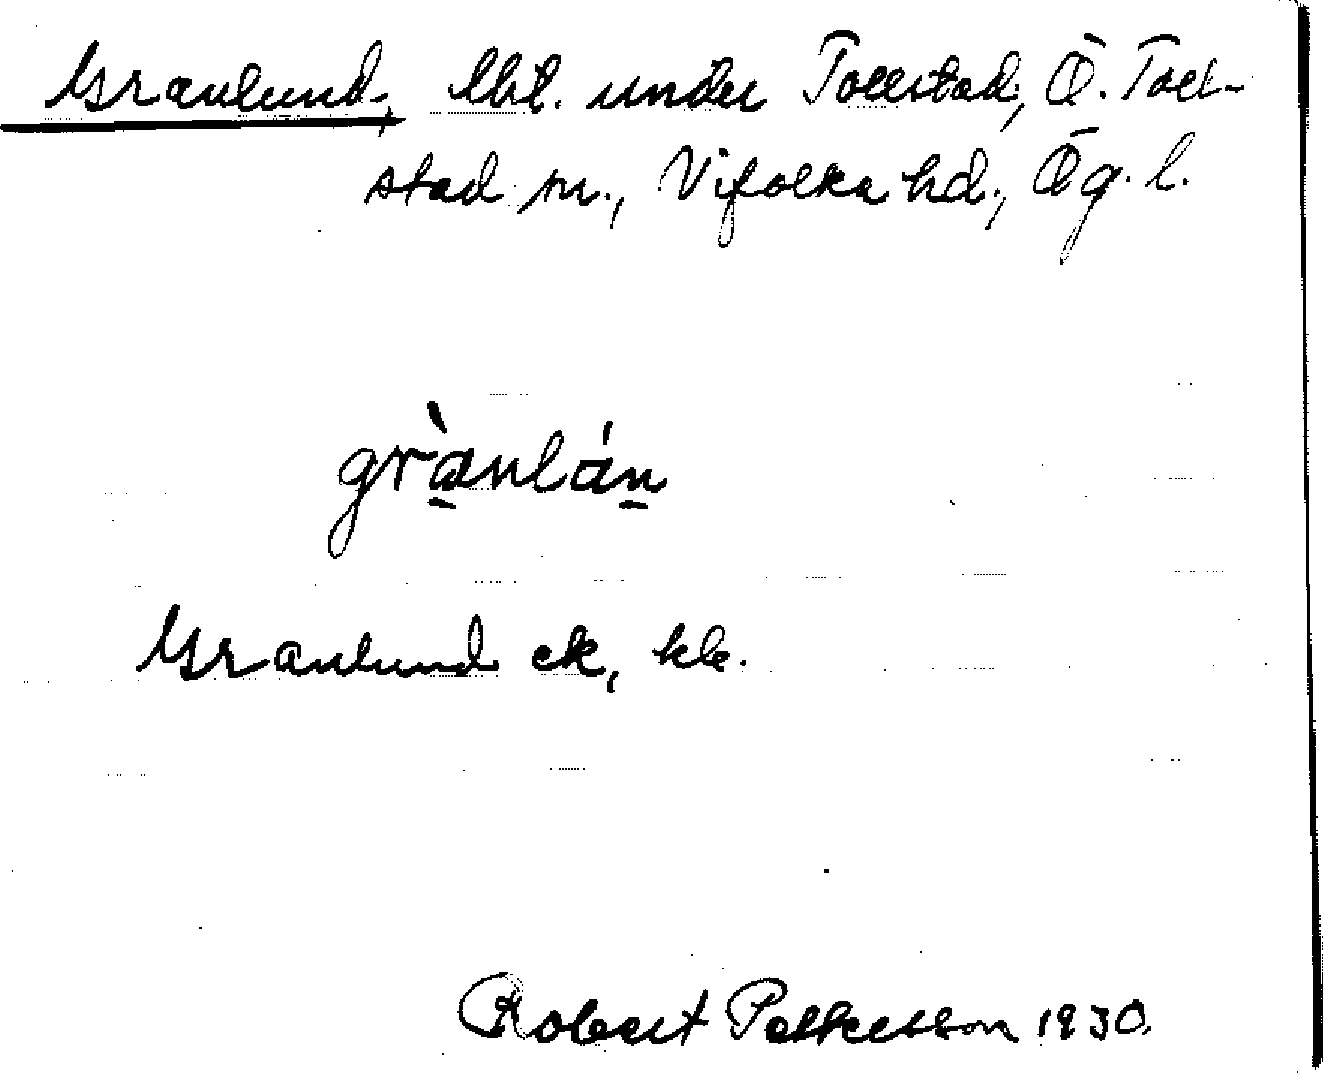 Granlund, lht. under Tollstad, Ö. Toll-
stad sn., Vifolka hd., Ög. l.
grànlán
Granlund ek, kla.
Robert Pettersson 1930.